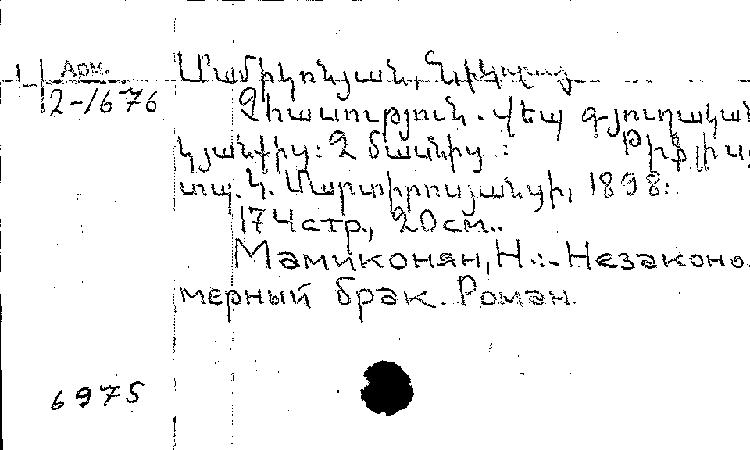 Арм.
2-1676
Մամիկոնյան, Նիկողայ
Չհասություն. վեպ գյուղական
կյանքից: 2 մասնից: Թիֆլիս,
տպ. Կ. Մարտիրոսյանցի, 1898:
174 стр., 20 см..
Мамиконян, Н.:. Незаконо
мерный брак. Роман.
6975